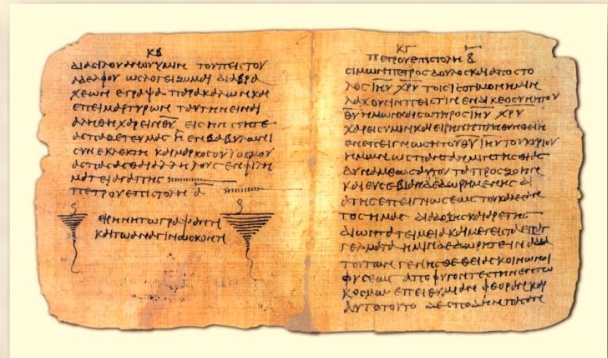 κβ
διασιλουανουυμιν τουπειστου
αδελφου ωσλογειζομαι διαβρα
χεων εγραψα παρακαλωνκαι
επειμαρτυρων ταυτηνειναι
αληθηχαρεινθυ εισ ην στητε
ασπαζετευμασ η ενβαβυλωνι
συνεκλεκτη καιμαρκοσουιοσμου
ασπασασθαιαλληλουσ ενφιλη
ματειαγαπησ
πετρουεπιστολη α
ειρηνητωγραψαντι
καιτωαναγινωσκοντι
κγ
πετρουεπιστολη β
σιμωνπετροσδουλοσκαιαποστο
λοσ ιηυ χρυ τοισισοτιμονημιν
λαχουσινπειστιν ενδικεοσυνητου
θυημωνκαισωτηροσ ιηυ χρυ
χαρεισυμινκαιειρηνηπληθυνθειη
ενεπειγνωσιτουθυ ιηυ τουκυριου
ημων ωσπανταημιντησθειασ
δυναμεωσαυτου ταπροσζωην
καιευσεβιανδεδωρημενησ δι
ατησεπειγνωσεωσ τουκαλεσαν
τοσημασ ιδιαδοξηκαιαρετη
διωντατειμειακαιμεγισταεπαγ
γελματα ημινδεδωρητε ιναδια
τουτων γενησθεθειασκοινωνοι
φυσεωσ αποφυγοντεστηνεντω
κοσμω επειθυμιαν φθορανκαι
αυτοτουτο δεσπουδηνπασαν